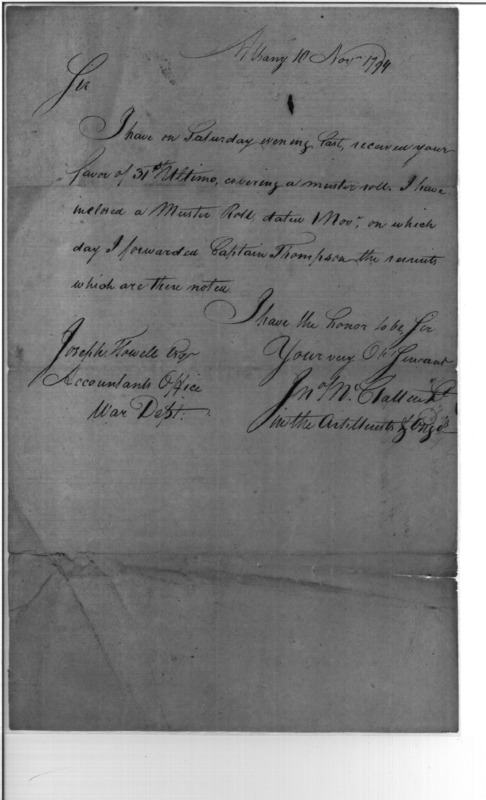 Albany 10 Nov.r 1794
Sir
I have on Saturday evening last, received your
favor of 31st Ultimo, covering a muster roll. I have
inclosed a Muster Roll, dated 1 Nov.r, on which
day I forwarded Captain Thompson the recruits
which are there noted
I have the honor to be, Sir
Your very Ob.t Servant
Jno Mc Clallen Lt
in the Artillerists & Eng.rs
Joseph Howell Esqr
Accountants Office
War Dept.